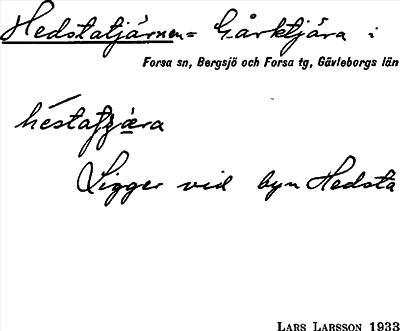 Hedstatjärnen = Gårktjära i
Forsa sn, Bergsjö och Forsa tg, Gävleborgs län
héstatjæra
Ligger vid byn Hedsta
LARS LARSSON 1933